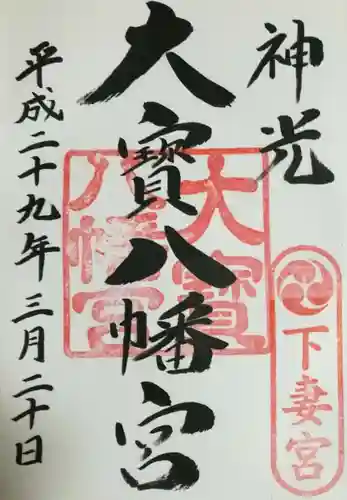 神光
大寳八幡宮
平成二十九年三月二十日
大寳
八幡宮
下妻宮